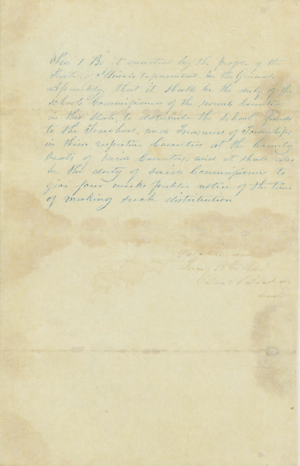 Sec 1 Be it enacted by the people of the
State of Illinois represented in the General
Assembly, that it shall be the duty of the
School Commissioner of the several Counties
in this State, to distribute the School funds
to the Teachers, and Treasurers of Townships
in their respective Counties at the County
seats of said Counties, and it shall also
be the duty of said Commissioner to
give four weeks public notice of the time
of making such distribution